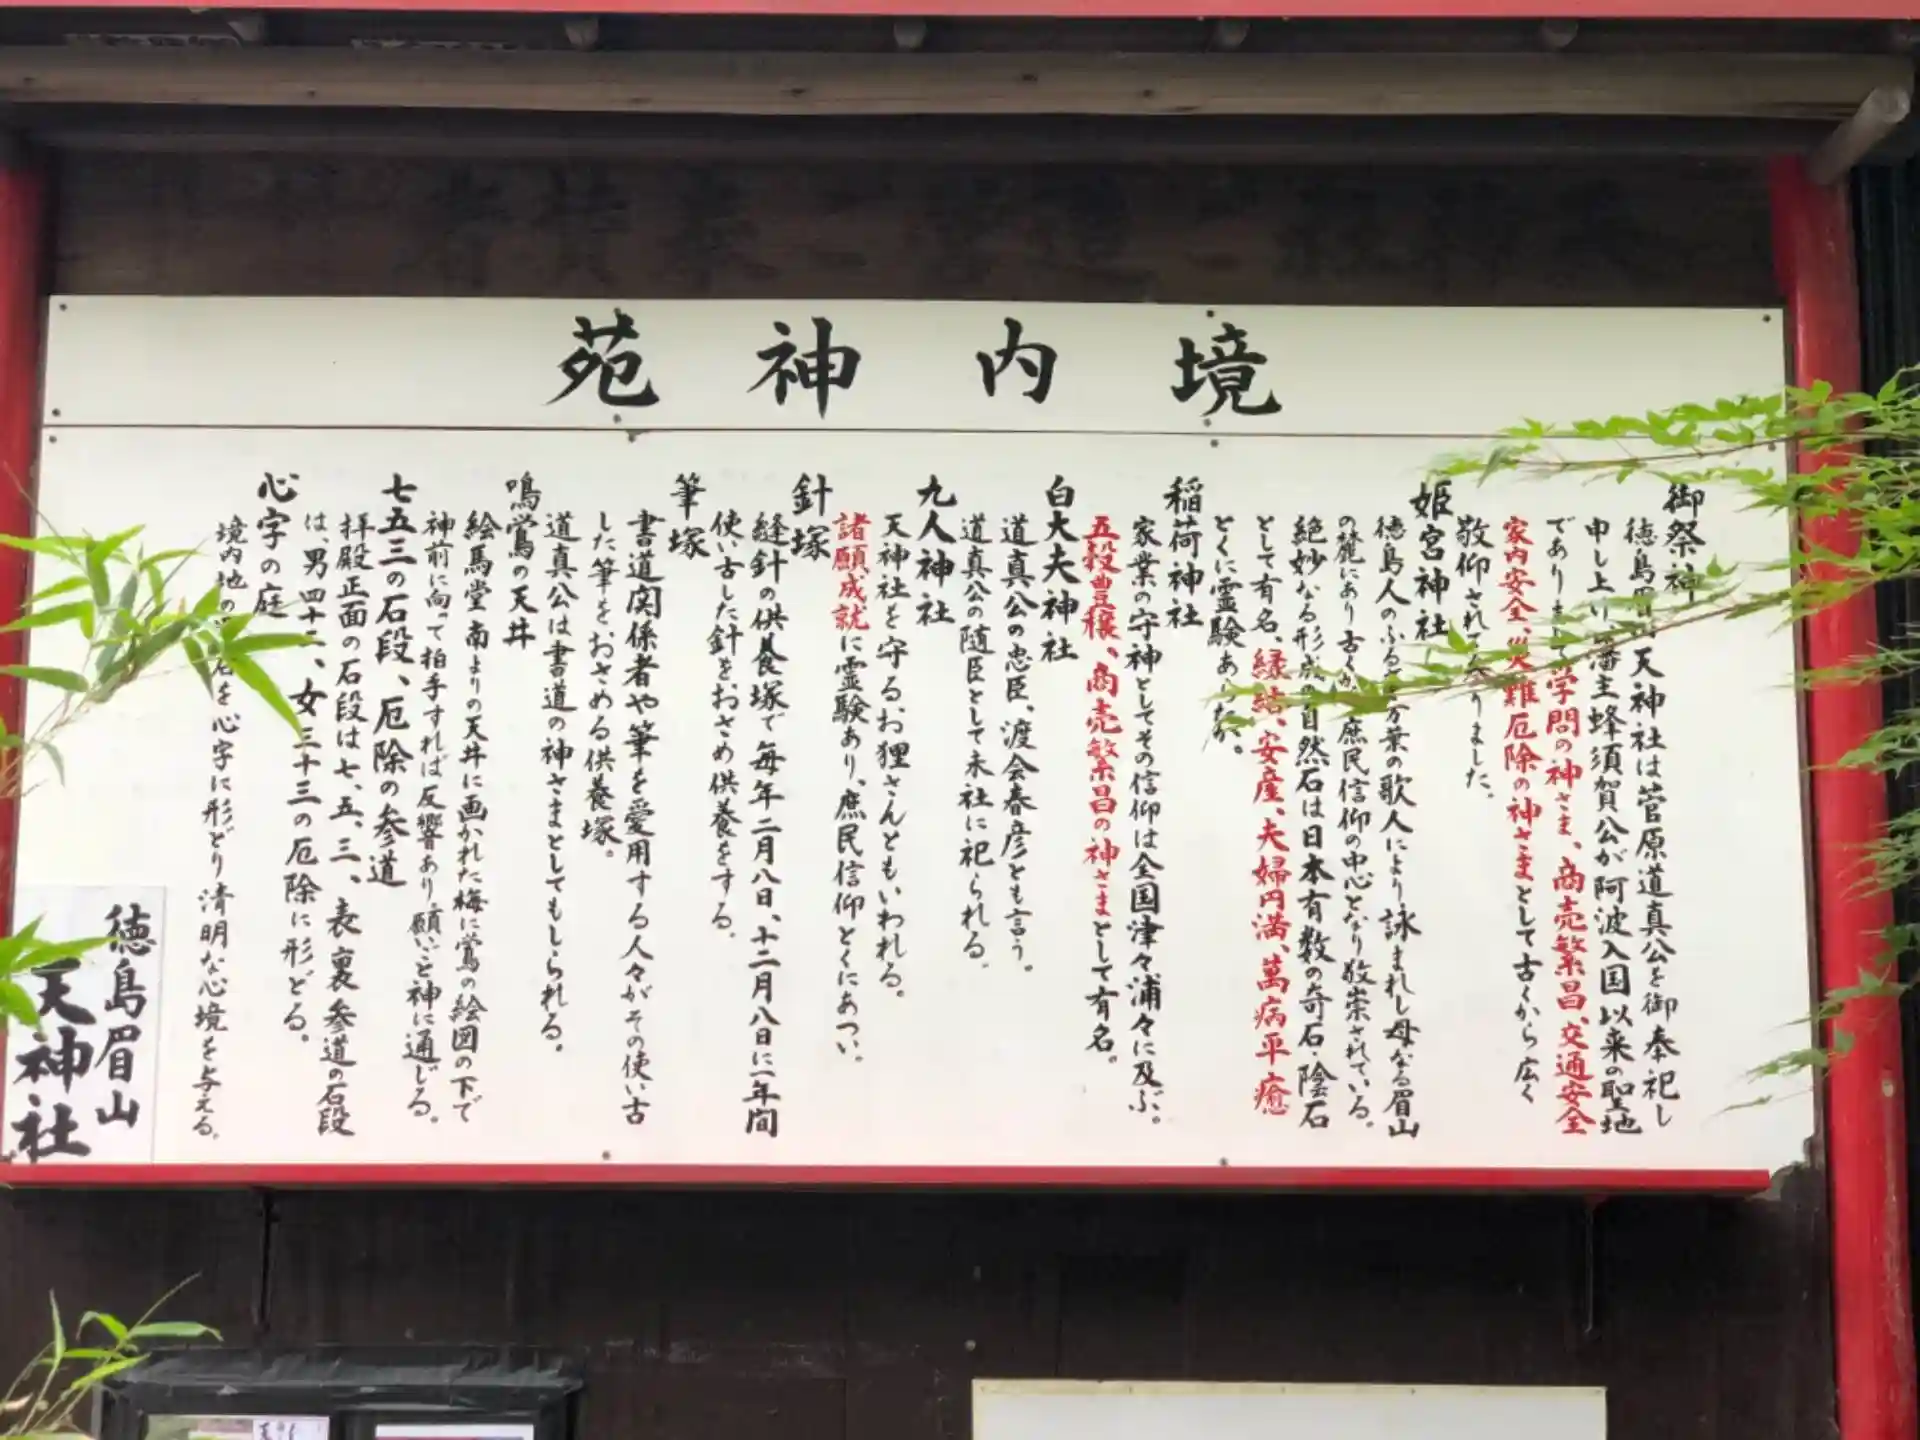 境内神苑
御祭神
徳島眉 天神社は菅原道真公を御奉祀し
申し上げ 藩主蜂須賀公が阿波入国以来の聖地
でありまして学問の神さま、商売繁昌、交通安全
家内安全、災難厄除の神さまとして古くから広く
敬仰されてまいりました。
姫宮神社
徳島人のふるさと万葉の歌人により詠まれし母なる眉山
の麓にあり古く 庶民信仰の中心となり敬崇されている。
絶妙なる形成の自然石は日本有数の奇石・陰石
として有名、縁結、安産、夫婦円満、萬病平癒
とくに霊験あらたか。
稲荷神社
家業の守神としてその信仰は全国津々浦々に及ぶ。
五穀豊穣、商売繁昌の神さまとして有名。
白大夫神社
道真公の忠臣、渡会春彦とも言う。
道真公の随臣として末社に祀られる。
九人神社
天神社を守る、お狸さんともいわれる。
諸願成就に霊験あり、庶民信仰とくにあつい。
針塚
縫針の供養塚で毎年二月八日、十二月八日に一年間
使い古した針をおさめ供養をする。
筆塚
書道関係者や筆を愛用する人々がその使い古
した筆をおさめる供養塚。
道真公は書道の神さまとしてもしられる。
鳴鴬の天井
絵馬堂南よりの天井に画かれた梅に鴬の絵図の下で
神前に向って拍手すれば反響あり願いごと神に通じる。
七五三の石段、厄除の参道
拝殿正面の石段は七、五、三、表裏参道の石段
は、男四十二、女三十三の厄除に形どる。
心字の庭
境内地の 石を心字に形どり清明な心境を与える。
徳島眉山
天神社